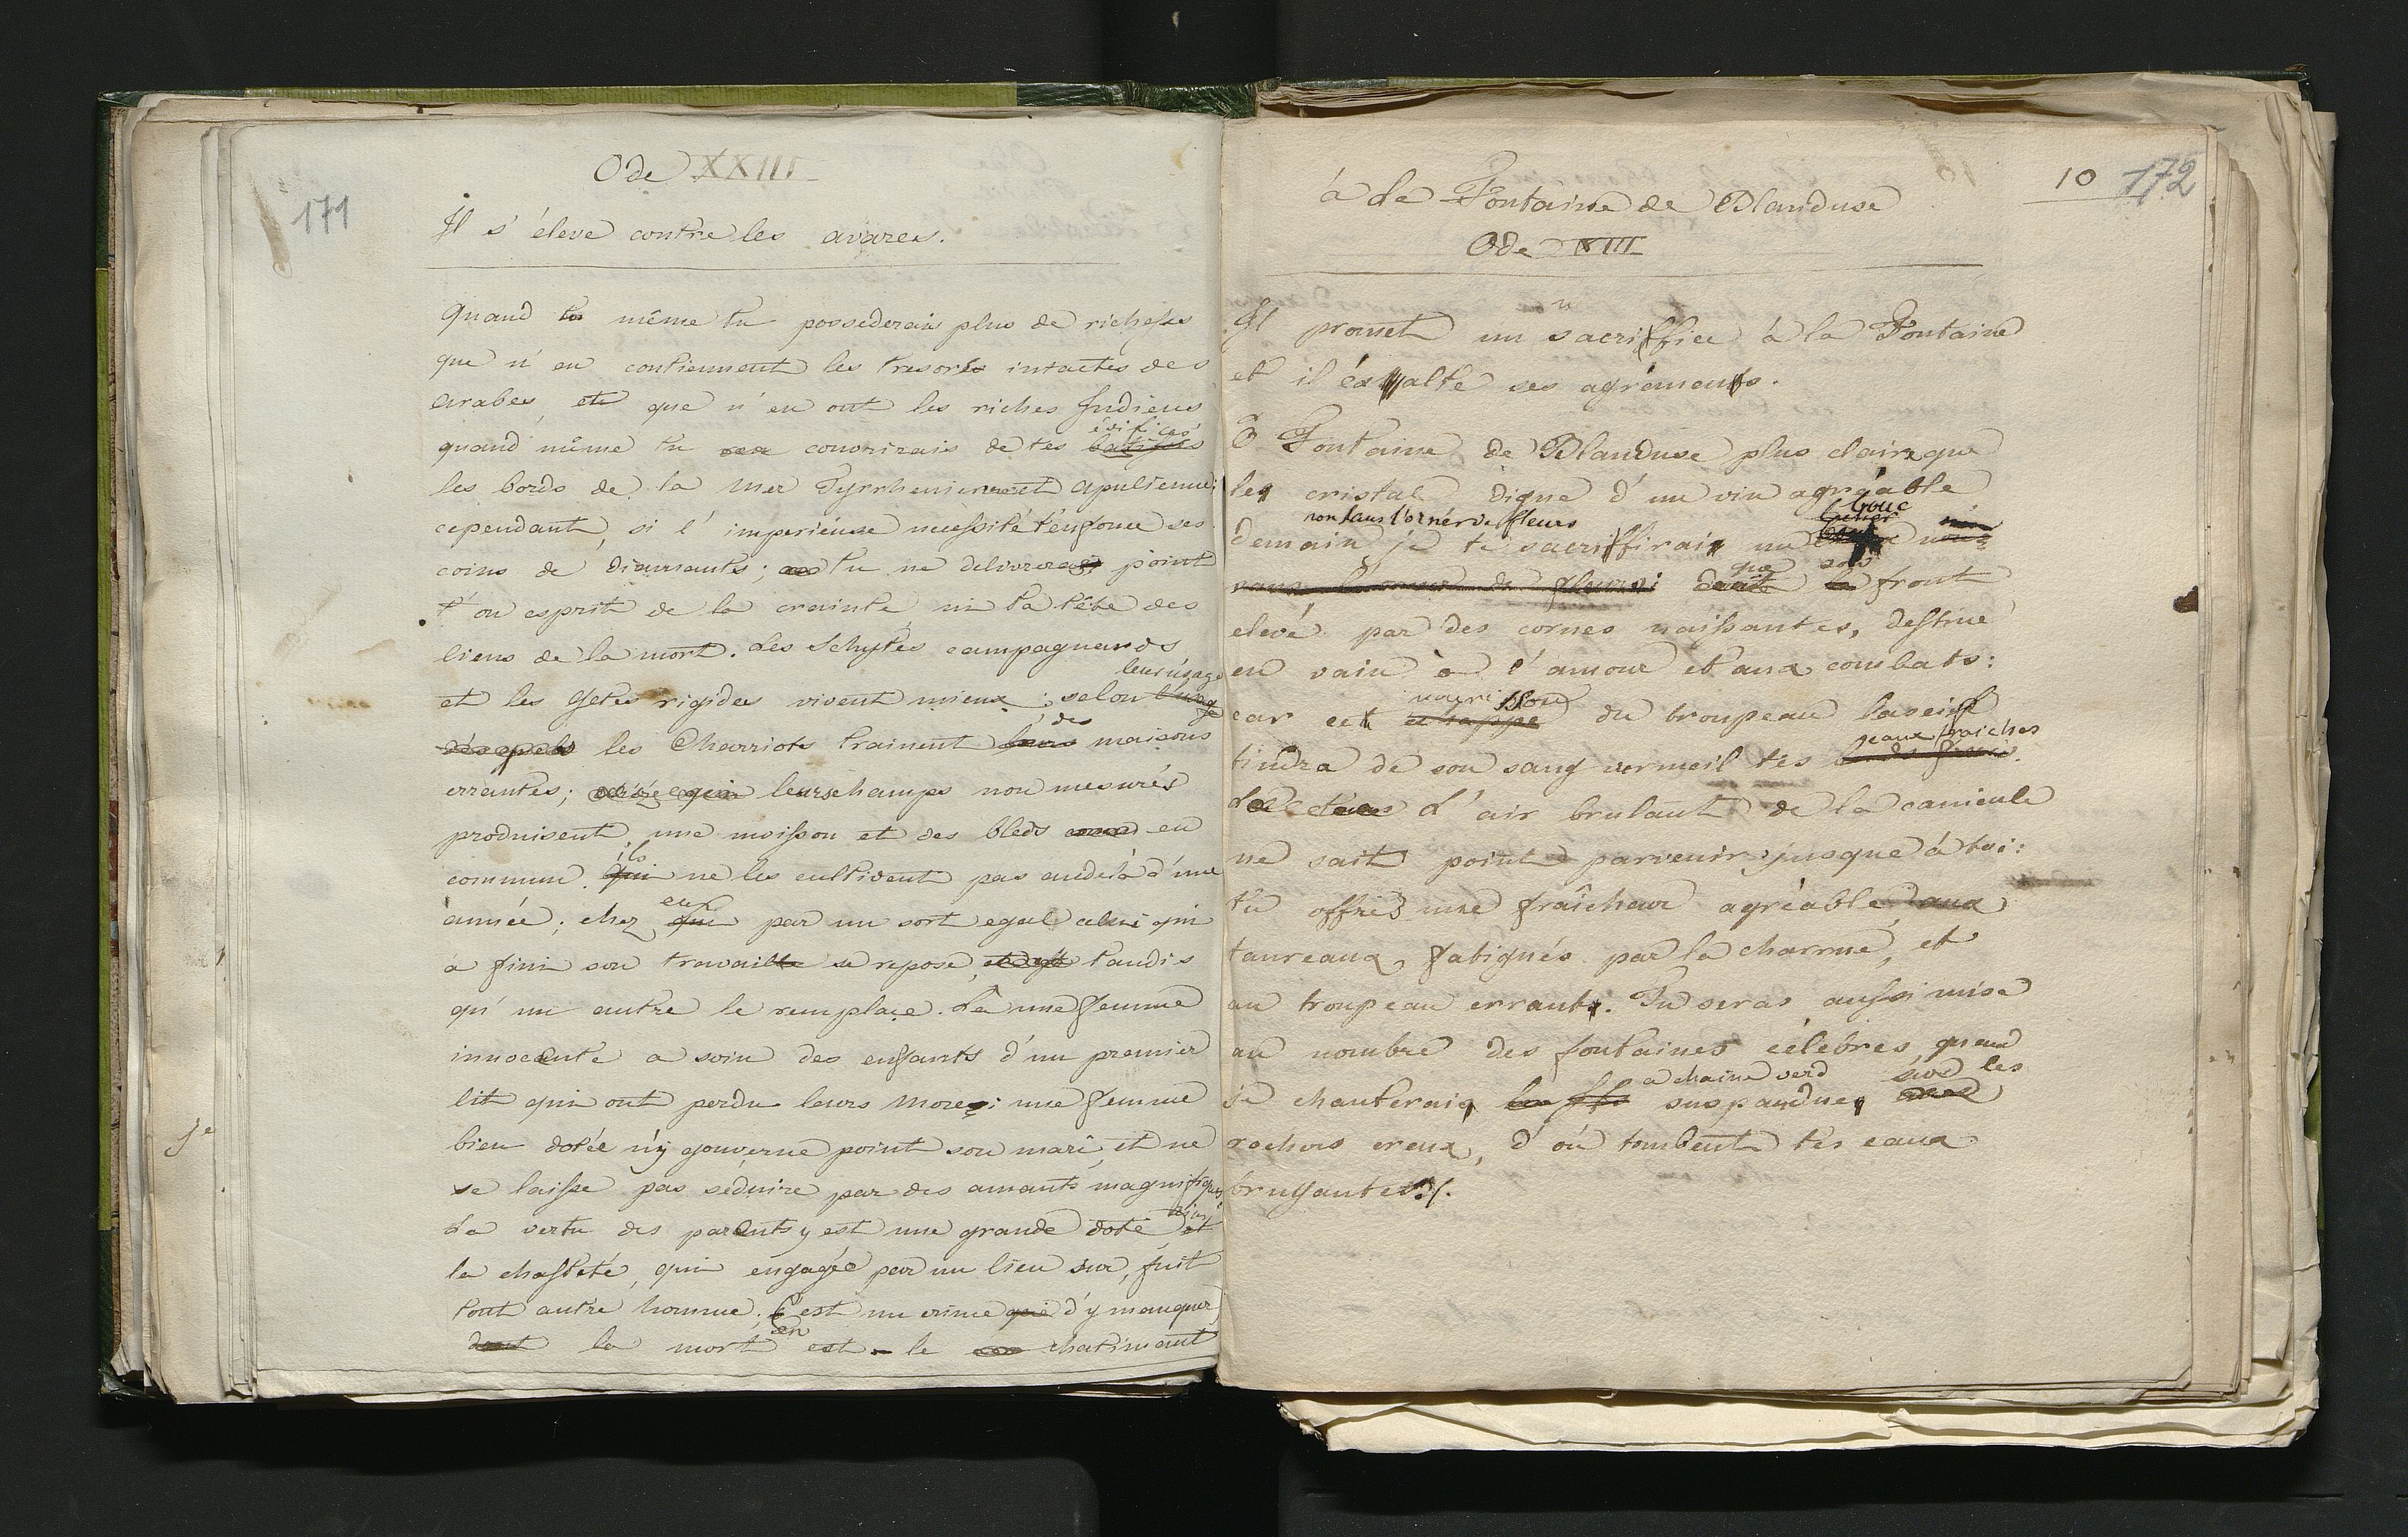 171
Ode XXIII
Il s'éleve contre les avares.
Quand même tu possederais plus de richesses
que n'en contiennent les tresors intactes des
arabes, et que n'en ont les riches Indiens
édifices
quand même tu couvrirais de tes batisses
les bords de la mer Tyrrhenienne et apulienne;
cependant, si l'imperieuse necessité t'enfonce ses
coins de diamants; tu ne delivreras point
t'on esprit de la crainte, ni ta tête des
liens de la mort. Les Schytes campagnards
leur usage
et les Getes rigides vivent mieux; selon l'usage
des
desquels les Charriots trainent leurs maisons
errantes; leurs champs non mesurés
produisent une moisson et des bleds en
ils
commun. qui ne les cultivent pas audela d'une
eux
année; chez qui par un sort egal celui qui
a fini son travaille se repose, tandis
qu'un autre le remplaçe. La une femme
innocente a soin des enfants d'un premier
lit qui ont perdu leurs mores; une femme
bien dotée n'y gouverne point son mari, et ne
se laisse pas séduire par des amants magnifiques
ainsi
La vertu des parents y est une grande dote et
la chasteté, qui engagée par un lien sur, fuit
tout autre homme; C'est un crime d'y manquer,
en
dont la mort est le chatimant
je
10 172
à la Fontaine de Blanduse
Ode XIII
n
Il promet un sacriffice à la Fontaine
et il éxalte ses agréments.
Ô Fontaine de Blanduse plus claire que
les cristal digne d'un vin agréable
non sans l'ornér de fleurs bouc
demain je te sacriffirai un non
sans l'orner de fleurs que son
dont le front
elevé par des cornes naissantes, destiné
en vain à l'amour et aux combats:
nourisson
car cet du troupeau lascif
eaux fraiches
tindra de son sang vermeil tes
L'air brulant de la canicule
ne sait point parvenir jusque à toi:
tu offres une fraîcheur agréable aux
taureaux, fatigués par la charrue, et
au troupeau errant. Tu seras aussi mise
au nombre des fontaines célebres, quand
a chaine verd sur les
je chanterai suspandue
rochers creux, d'où tombent tes eaux
bruyantes.